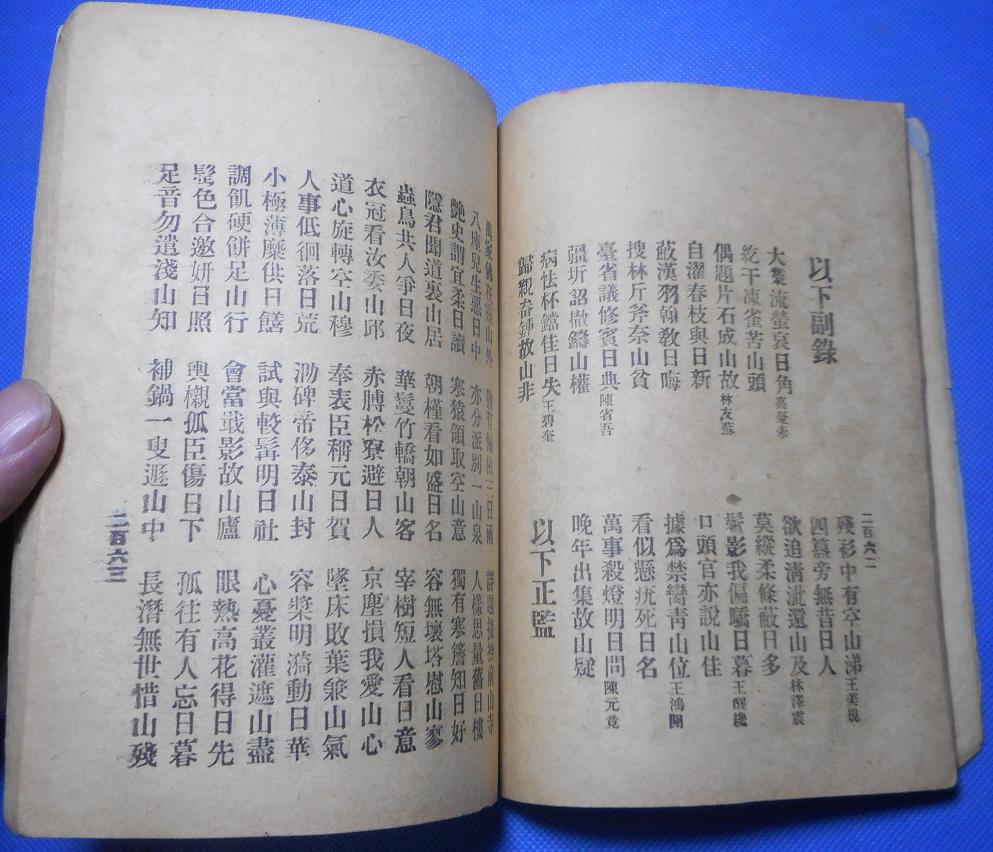 以下副錄
大業流螢哀日角 高愛素
紇干凍雀苦山頭
偶題片石成山故 林友蘇
自濯春枝與日新
蔽漢羽翰教日晦
搜林斤斧奈山貧
臺省議修賓日典 陳省吾
彊圻詔撤鑄山權
病怯杯鐺佳日失 王碧奎
歸親畚鍤故山非
二百六二
殘衫中有空山涕 王美規
四簋旁無昔日人
欲迫清沘還山及 林澤震
莫縱柔條蔽日多
鬢影我偏驕日暮 王醒纔
口頭官亦說山佳
據爲禁臠青山位 王鴻開
看似懸疣死日名
萬事殺燈明日問 陳元竟
晚年出集故山疑
以下正監
八座兒生惡日中
艷史謂宜柔日讀
隱君聞道裏山居
蟲鳥共人爭日夜
衣冠看汝委山邱
道心旋轉空山穆
人事低徊落日荒
小極薄糜供日饍
調飢硬餅足山行
髩色合邀妍日照
足音勿遣淺山知
亦分派別一山泉
寒猿領取空山意
朝槿看如盛日名
華鬘竹轎朝山客
赤膊松寮避日人
奉表臣稱元日賀
泐碑帝侈泰山封
試與較髯明日社
會當戢影故山廬
輿櫬孤臣傷日下
補鍋一叟遯山中
人樣思量舊日樓
獨有寒簷知日好
容無壞塔慰山寥
宰樹短人看日意
京塵損我愛山心
墜床敗葉兼山氣
容槳明漪動日華
心憂叢灌遮山盡
眼熱高花得日先
孤往有人忘日暮
長潛無世惜山殘
二百六三